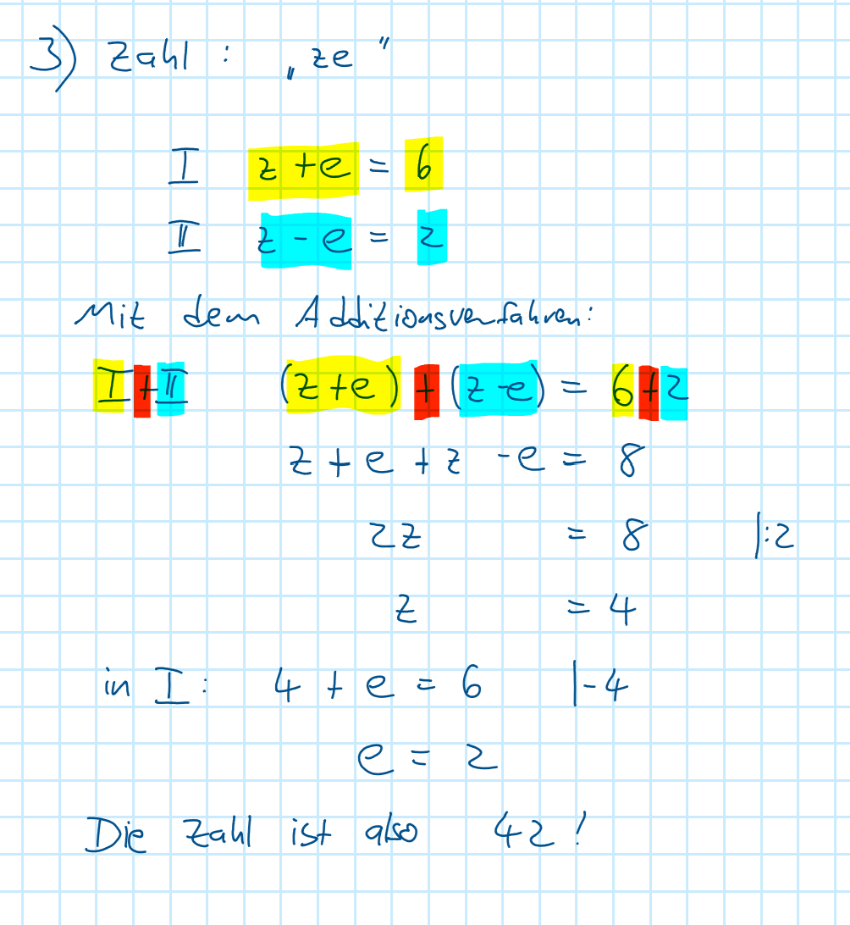 3) Zahl : „ze"
I z + e = 6
II z - e = 2
Mit dem Additionsverfahren:
I+II (z+e) + (z-e) = 6+2
z + e + z - e = 8
2z = 8 |:2
z = 4
in I: 4 + e = 6 |-4
e = 2
Die Zahl ist also 42!